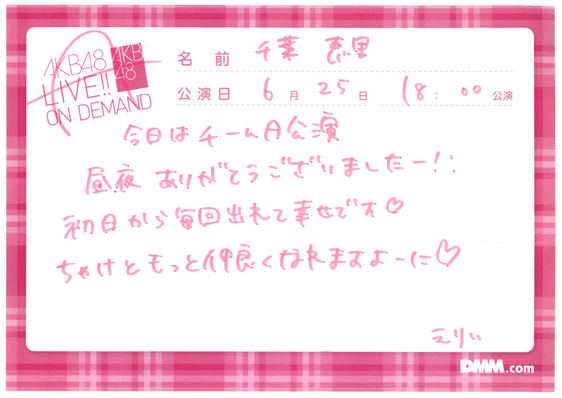 AKB48
LIVE!!
ON DEMAND
AKB
48
名前 千葉 恵里
公演日 6月25日 18:00公演
今日はチームA公演
昼夜ありがとうございましたー!!
初日から毎回出れて幸せです♡
ちゃけともっと仲良くなれますよーに♡
えりい
DMM.com